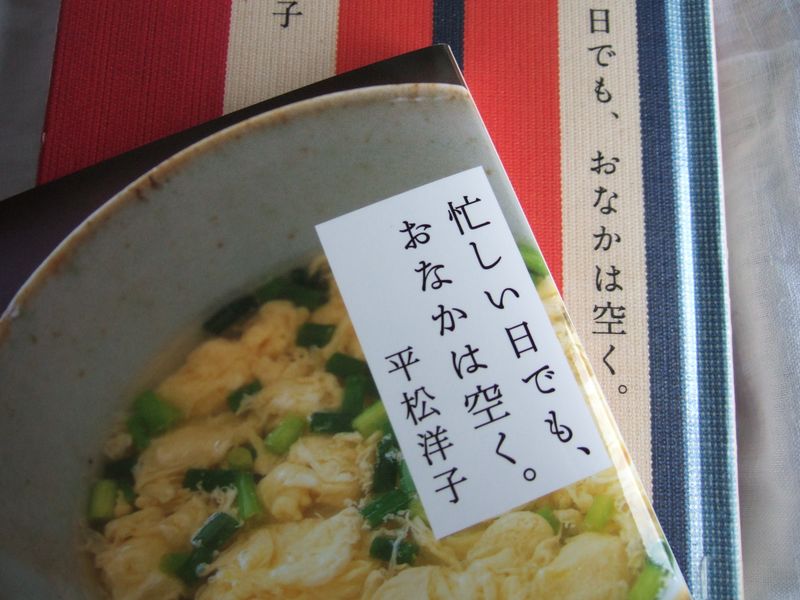 忙しい日でも、
おなかは空く。
平松洋子
日でも、おなかは空く。
子